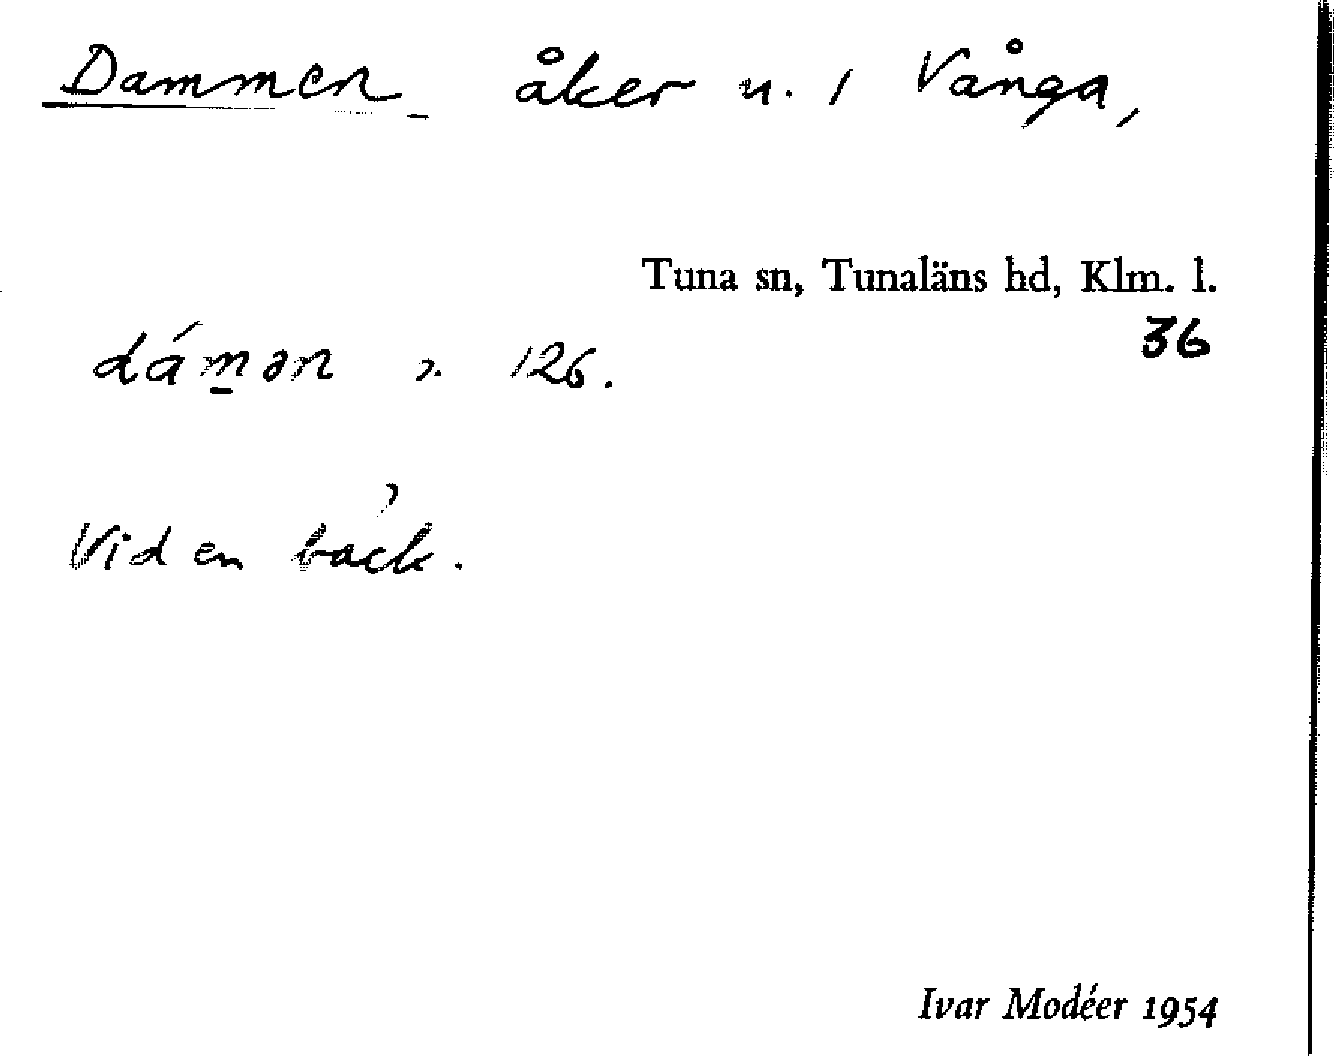 Dammen åker n. 1 Vånga,
Tuna sn, Tunaläns hd, Klm. l.
36
dám̲ən 126.
Vid en bäck.
Ivar Modéer 1954